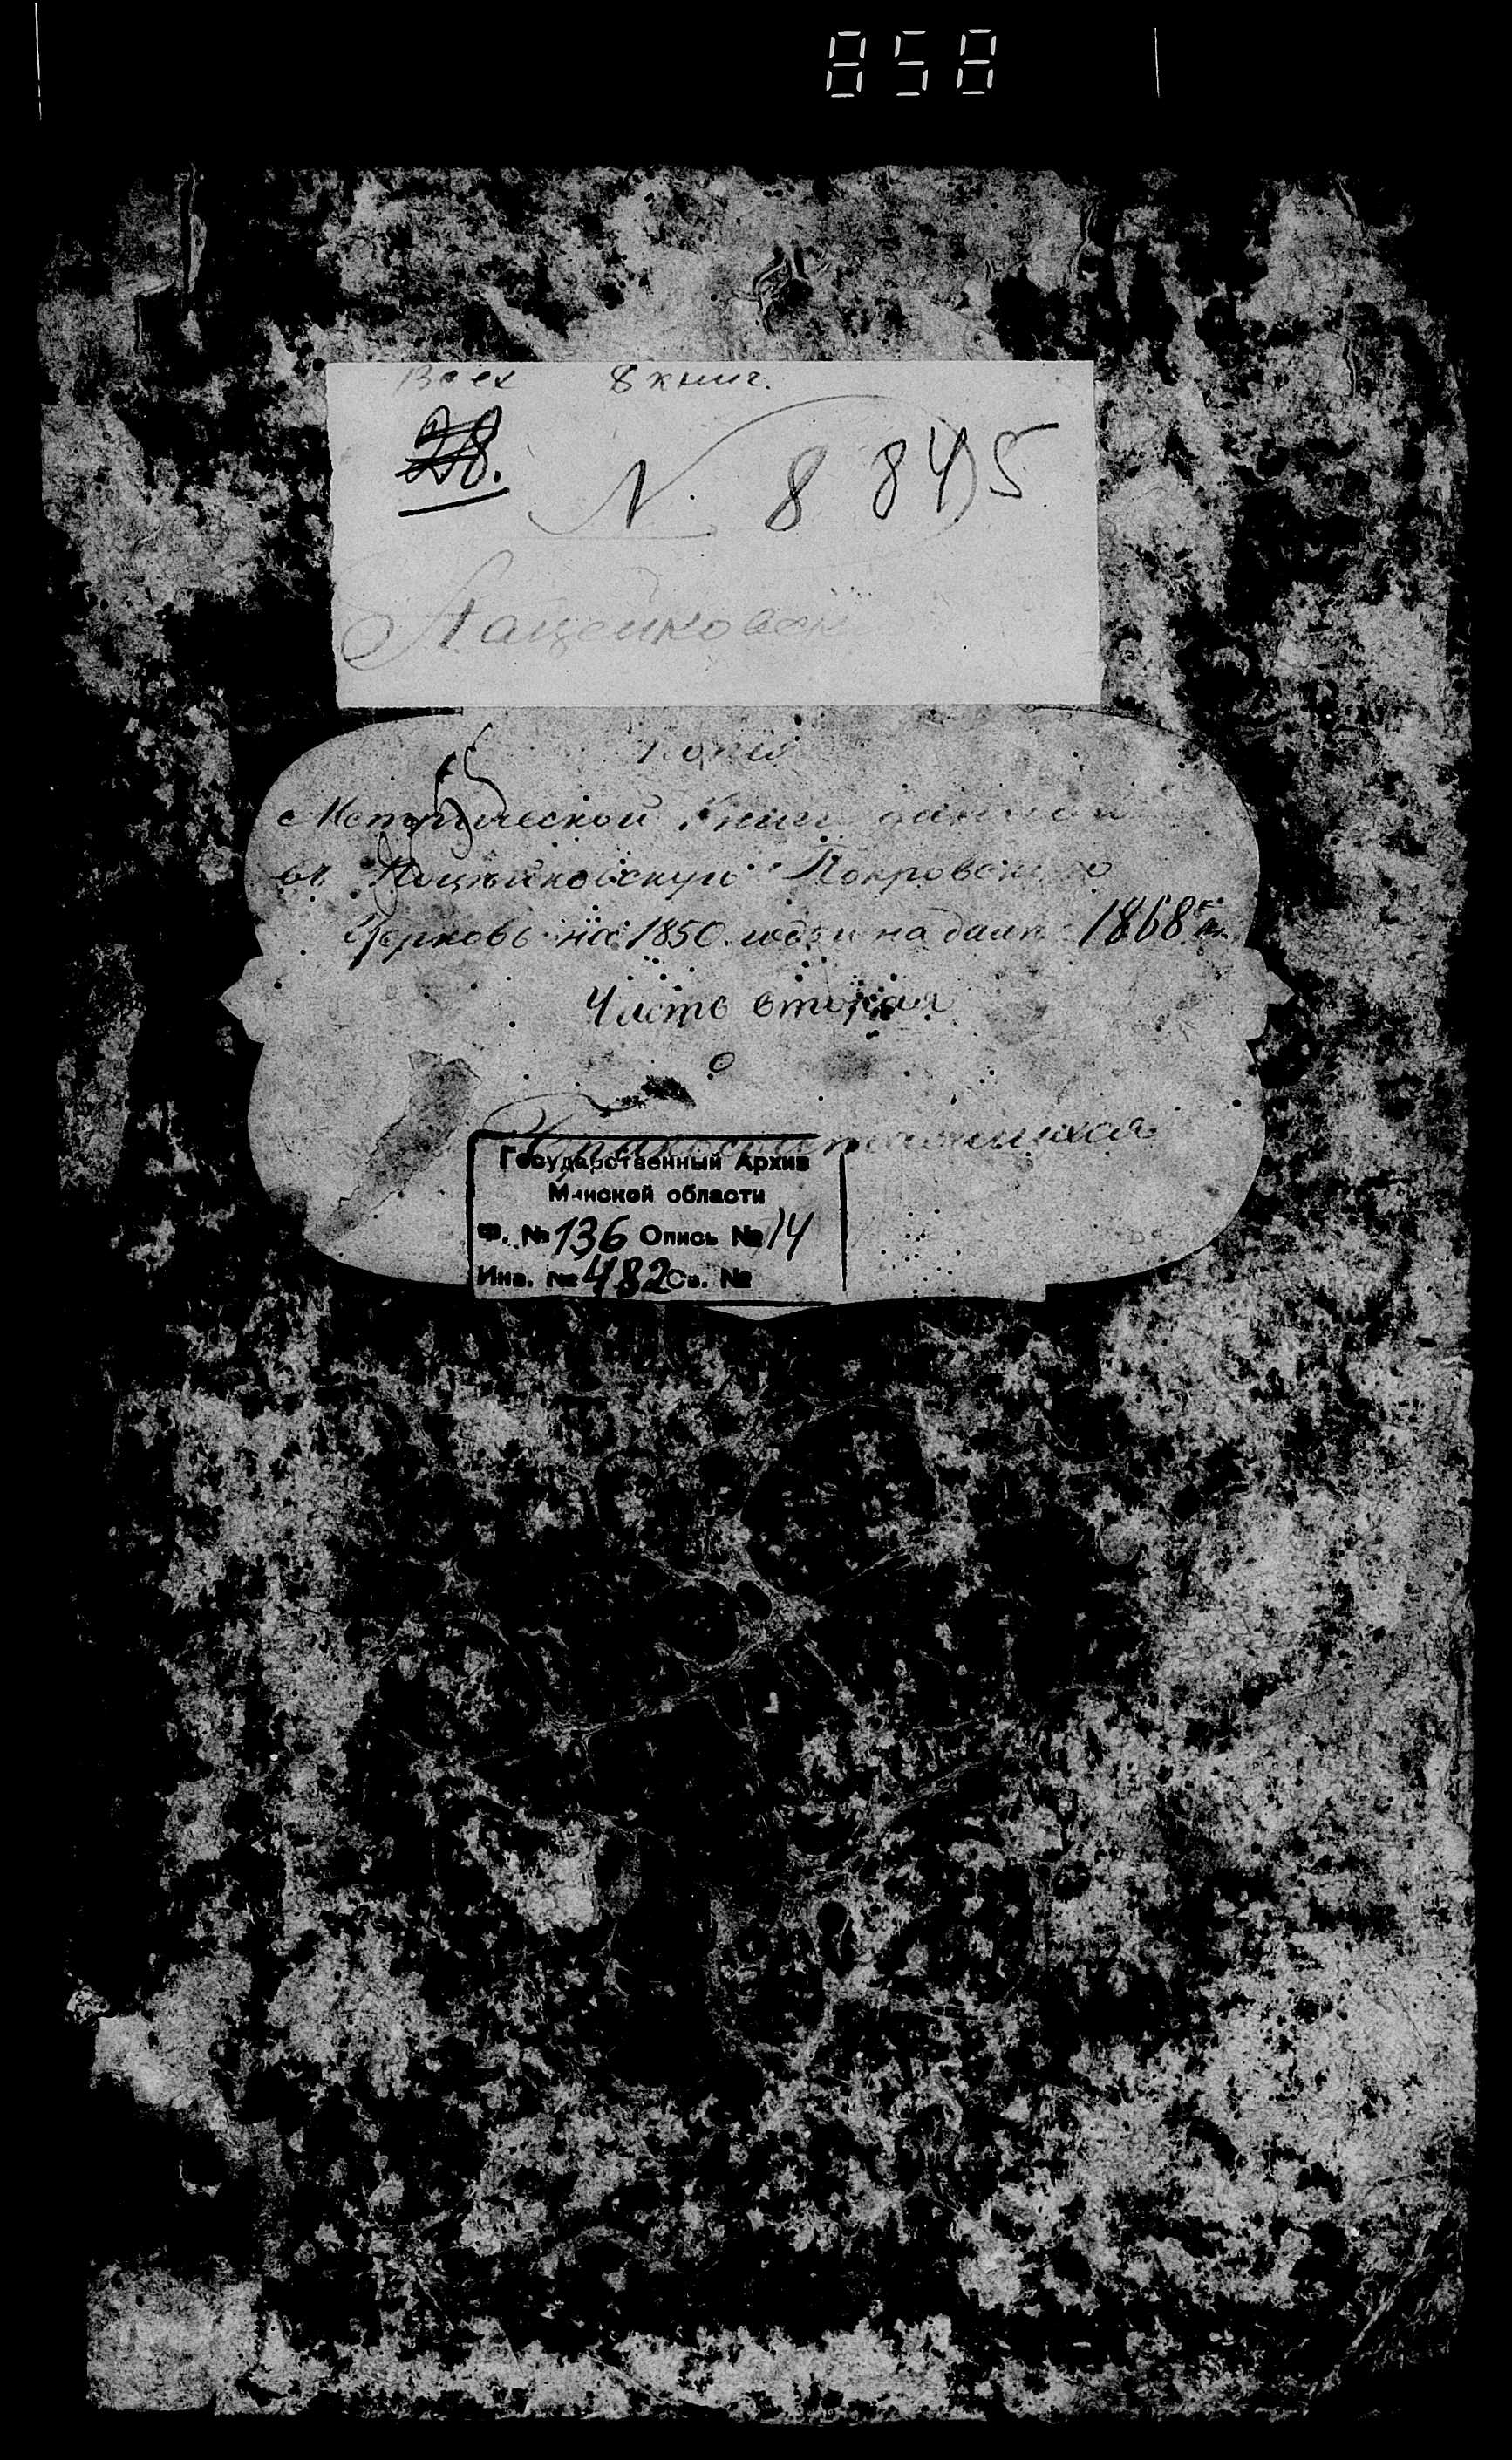 858
Всех 8 книг.
28.
N. 8 845
Пацейковск
Копия
Метрической Книги данной
въ Пацѣйковскую Покровскую
Церковь на 1850 годъ и на далѣе 1868
Часть вторая
О
Бракосочетавшихся
Государственный Архив
Минской области
Ф. № 136 Опись № 14
Инв. № 482 Св. №